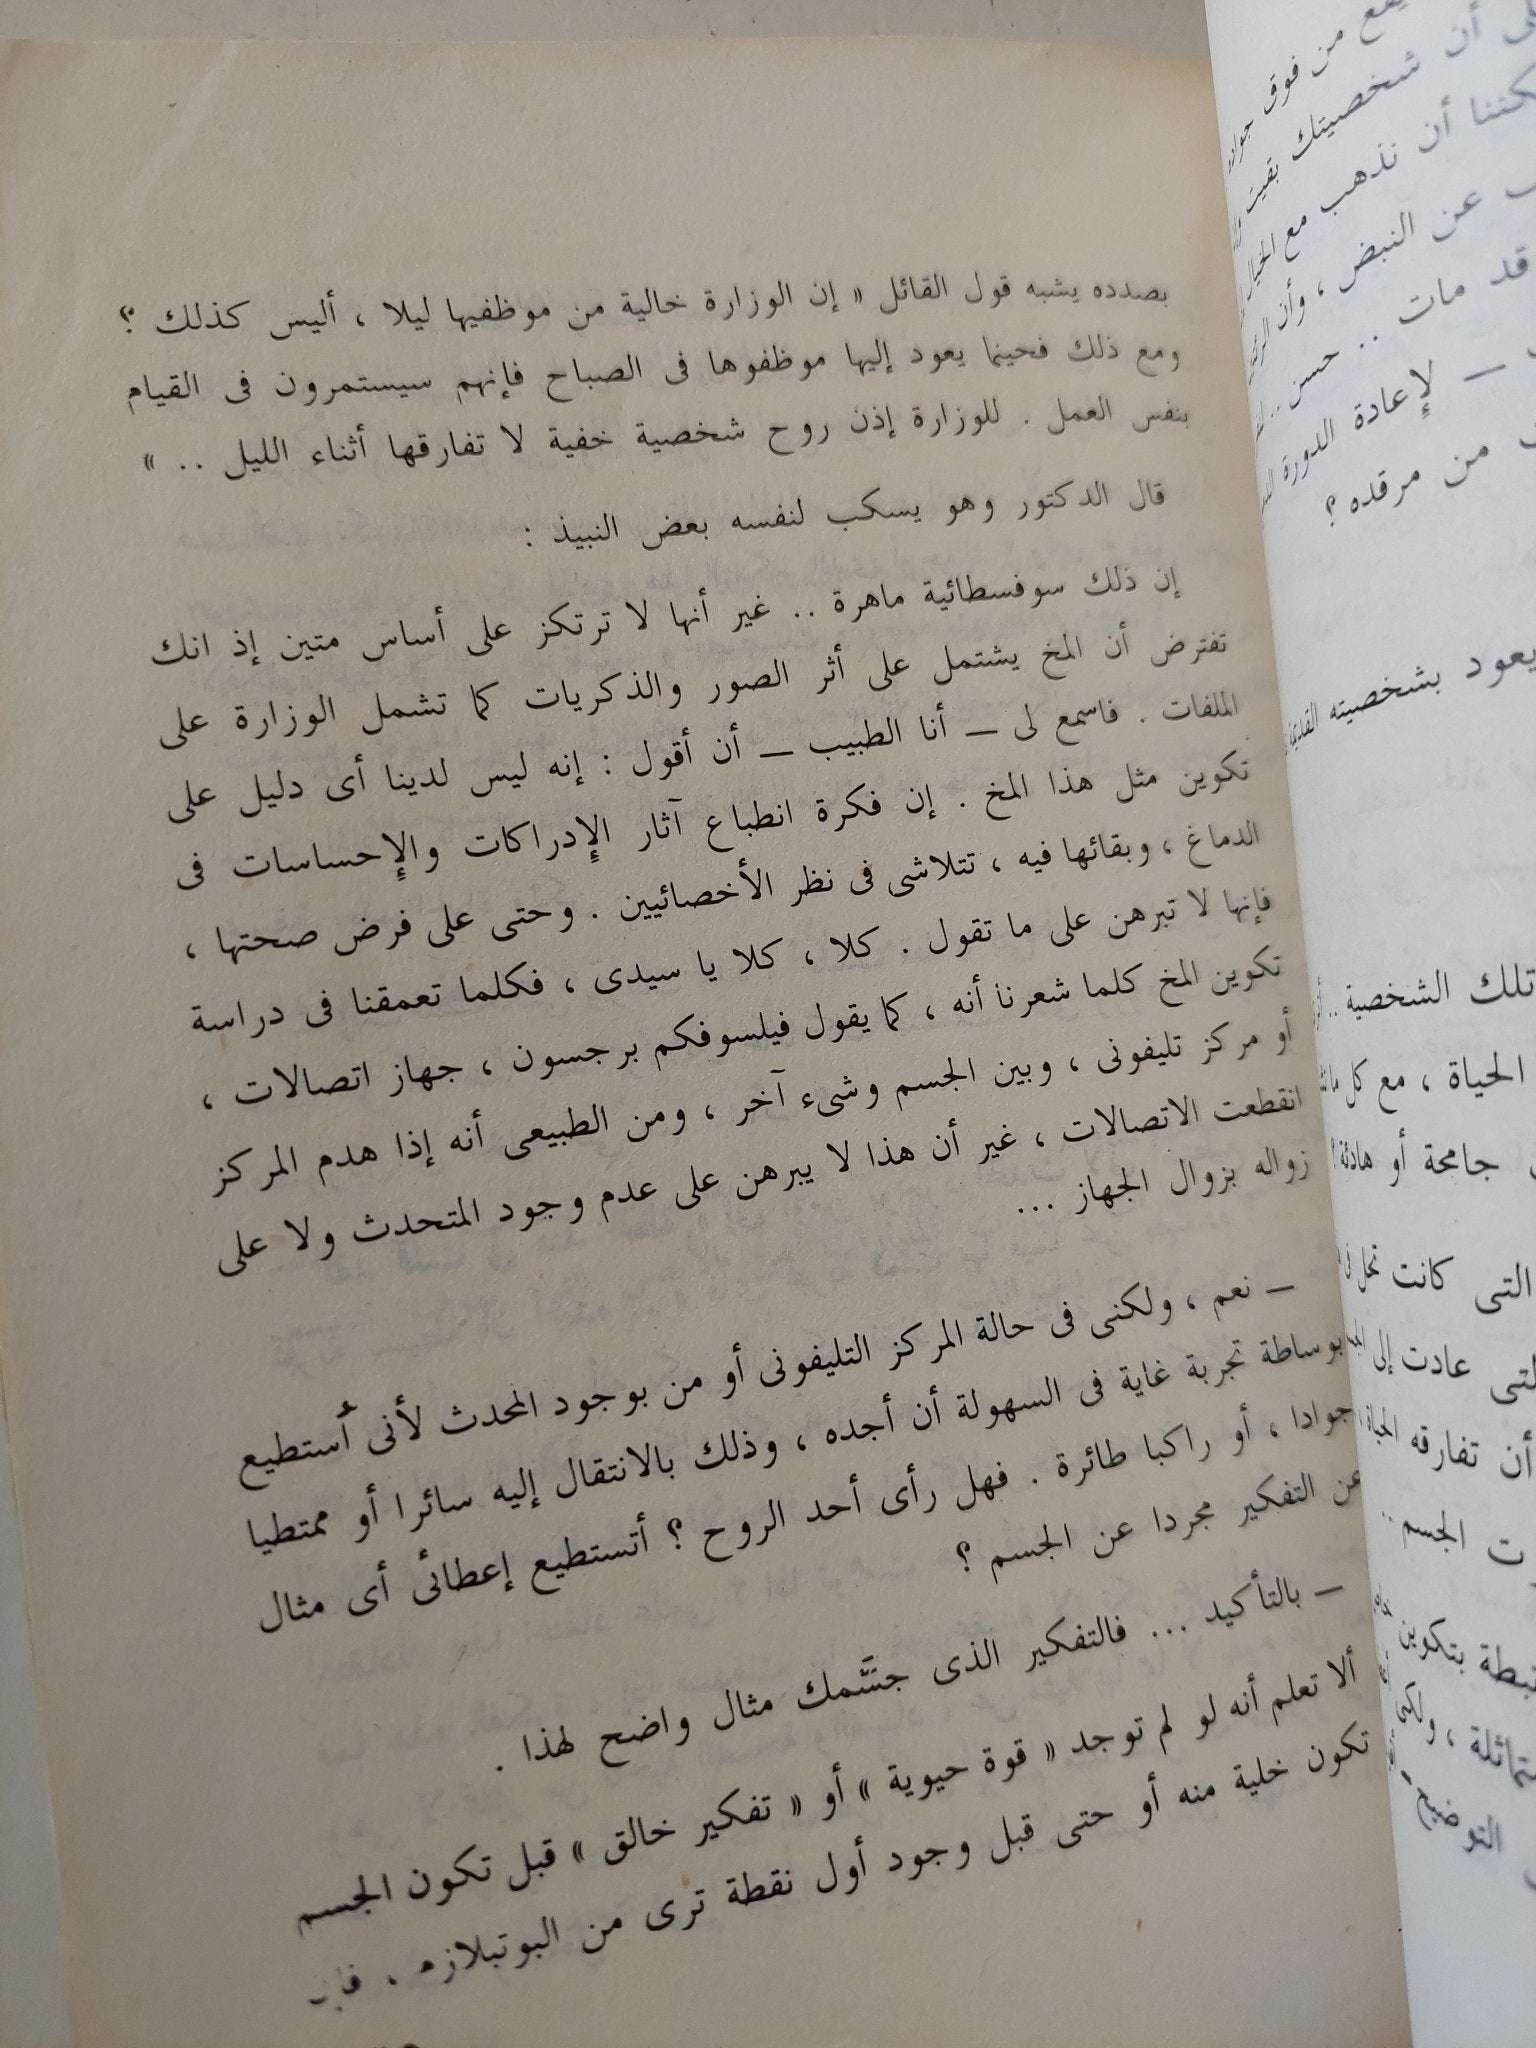 بصدده يشبه قول القائل « إن الوزارة خالية من موظفيها ليلا ، أليس كذلك ؟
ومع ذلك فحينما يعود إليها موظفوها فى الصباح فإنهم سيستمرون فى القيام
بنفس العمل . للوزارة إذن روح شخصية خفية لا تفارقها أثناء الليل .. »
قال الدكتور وهو يسكب لنفسه بعض النبيذ :
إن ذلك سوفسطائية ماهرة .. غير أنها لا ترتكز على أساس متين إذ انك
تفترض أن المخ يشتمل على أثر الصور والذكريات كما تشمل الوزارة على
الملفات . فاسمع لى — أنا الطبيب — أن أقول : إنه ليس لدينا أى دليل على
تكوين مثل هذا المخ . إن فكرة انطباع آثار الإدراكات والإحساسات فى
الدماغ ، وبقائها فيه ، تتلاشى فى نظر الأخصائيين . وحتى على فرض صحتها ،
فإنها لا تبرهن على ما تقول . كلا ، كلا يا سيدى ، فكلما تعمقنا فى دراسة
تكوين المخ كلما شعرنا أنه ، كما يقول فيلسوفكم برجسون ، جهاز اتصالات ،
أو مركز تليفونى ، وبين الجسم وشىء آخر ، ومن الطبيعى أنه إذا هدم المركز
انقطعت الاتصالات ، غير أن هذا لا يبرهن على عدم وجود المتحدث ولا على
زواله بزوال الجهاز ...
— نعم ، ولكنى فى حالة المركز التليفونى أو من بوجود المحدث لأنى أستطيع
بوساطة تجربة غاية فى السهولة أن أجده ، وذلك بالانتقال إليه سائرا أو ممتطيا
جوادا ، أو راكبا طائرة . فهل رأى أحد الروح ؟ أتستطيع إعطائى أى مثال
عن التفكير مجردا عن الجسم ؟
— بالتأكيد ... فالتفكير الذى جسَّمك مثال واضح لهذا .
ألا تعلم أنه لو لم توجد « قوة حيوية » أو « تفكير خالق » قبل تكون الجسم
تكون خلية منه أو حتى قبل وجود أول نقطة ترى من البوتبلازم ،
من فوق
أن شخصيتك بقيت
أن نذهب مع الخيال
عن النبض ، وأن
قد مات .. حسن ..
— لإعادة الدورة
من مرقده ؟
يعود بشخصيته
تلك الشخصية ..
الحياة ، مع كل
جامحة أو هادئة ؟
التى كانت تحل فى
عادت إلى
أن تفارقه الحياة
الجسم ..
بتكوين